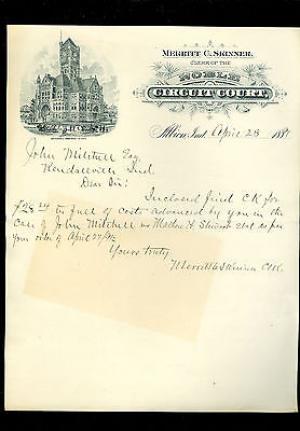 MERRITT C. SKINNER,
CLERK OF THE
NOBLE
CIRCUIT COURT.
Albion, Ind. April 28 188
John Mitchell Esq
Kendallville Ind
Dear Sir:
Inclosed find CK for
in full of costs advanced by you in the
Case of John Mitchell vs H as per
your order of April 27
Yours truly
Merritt C Skinner Clk.